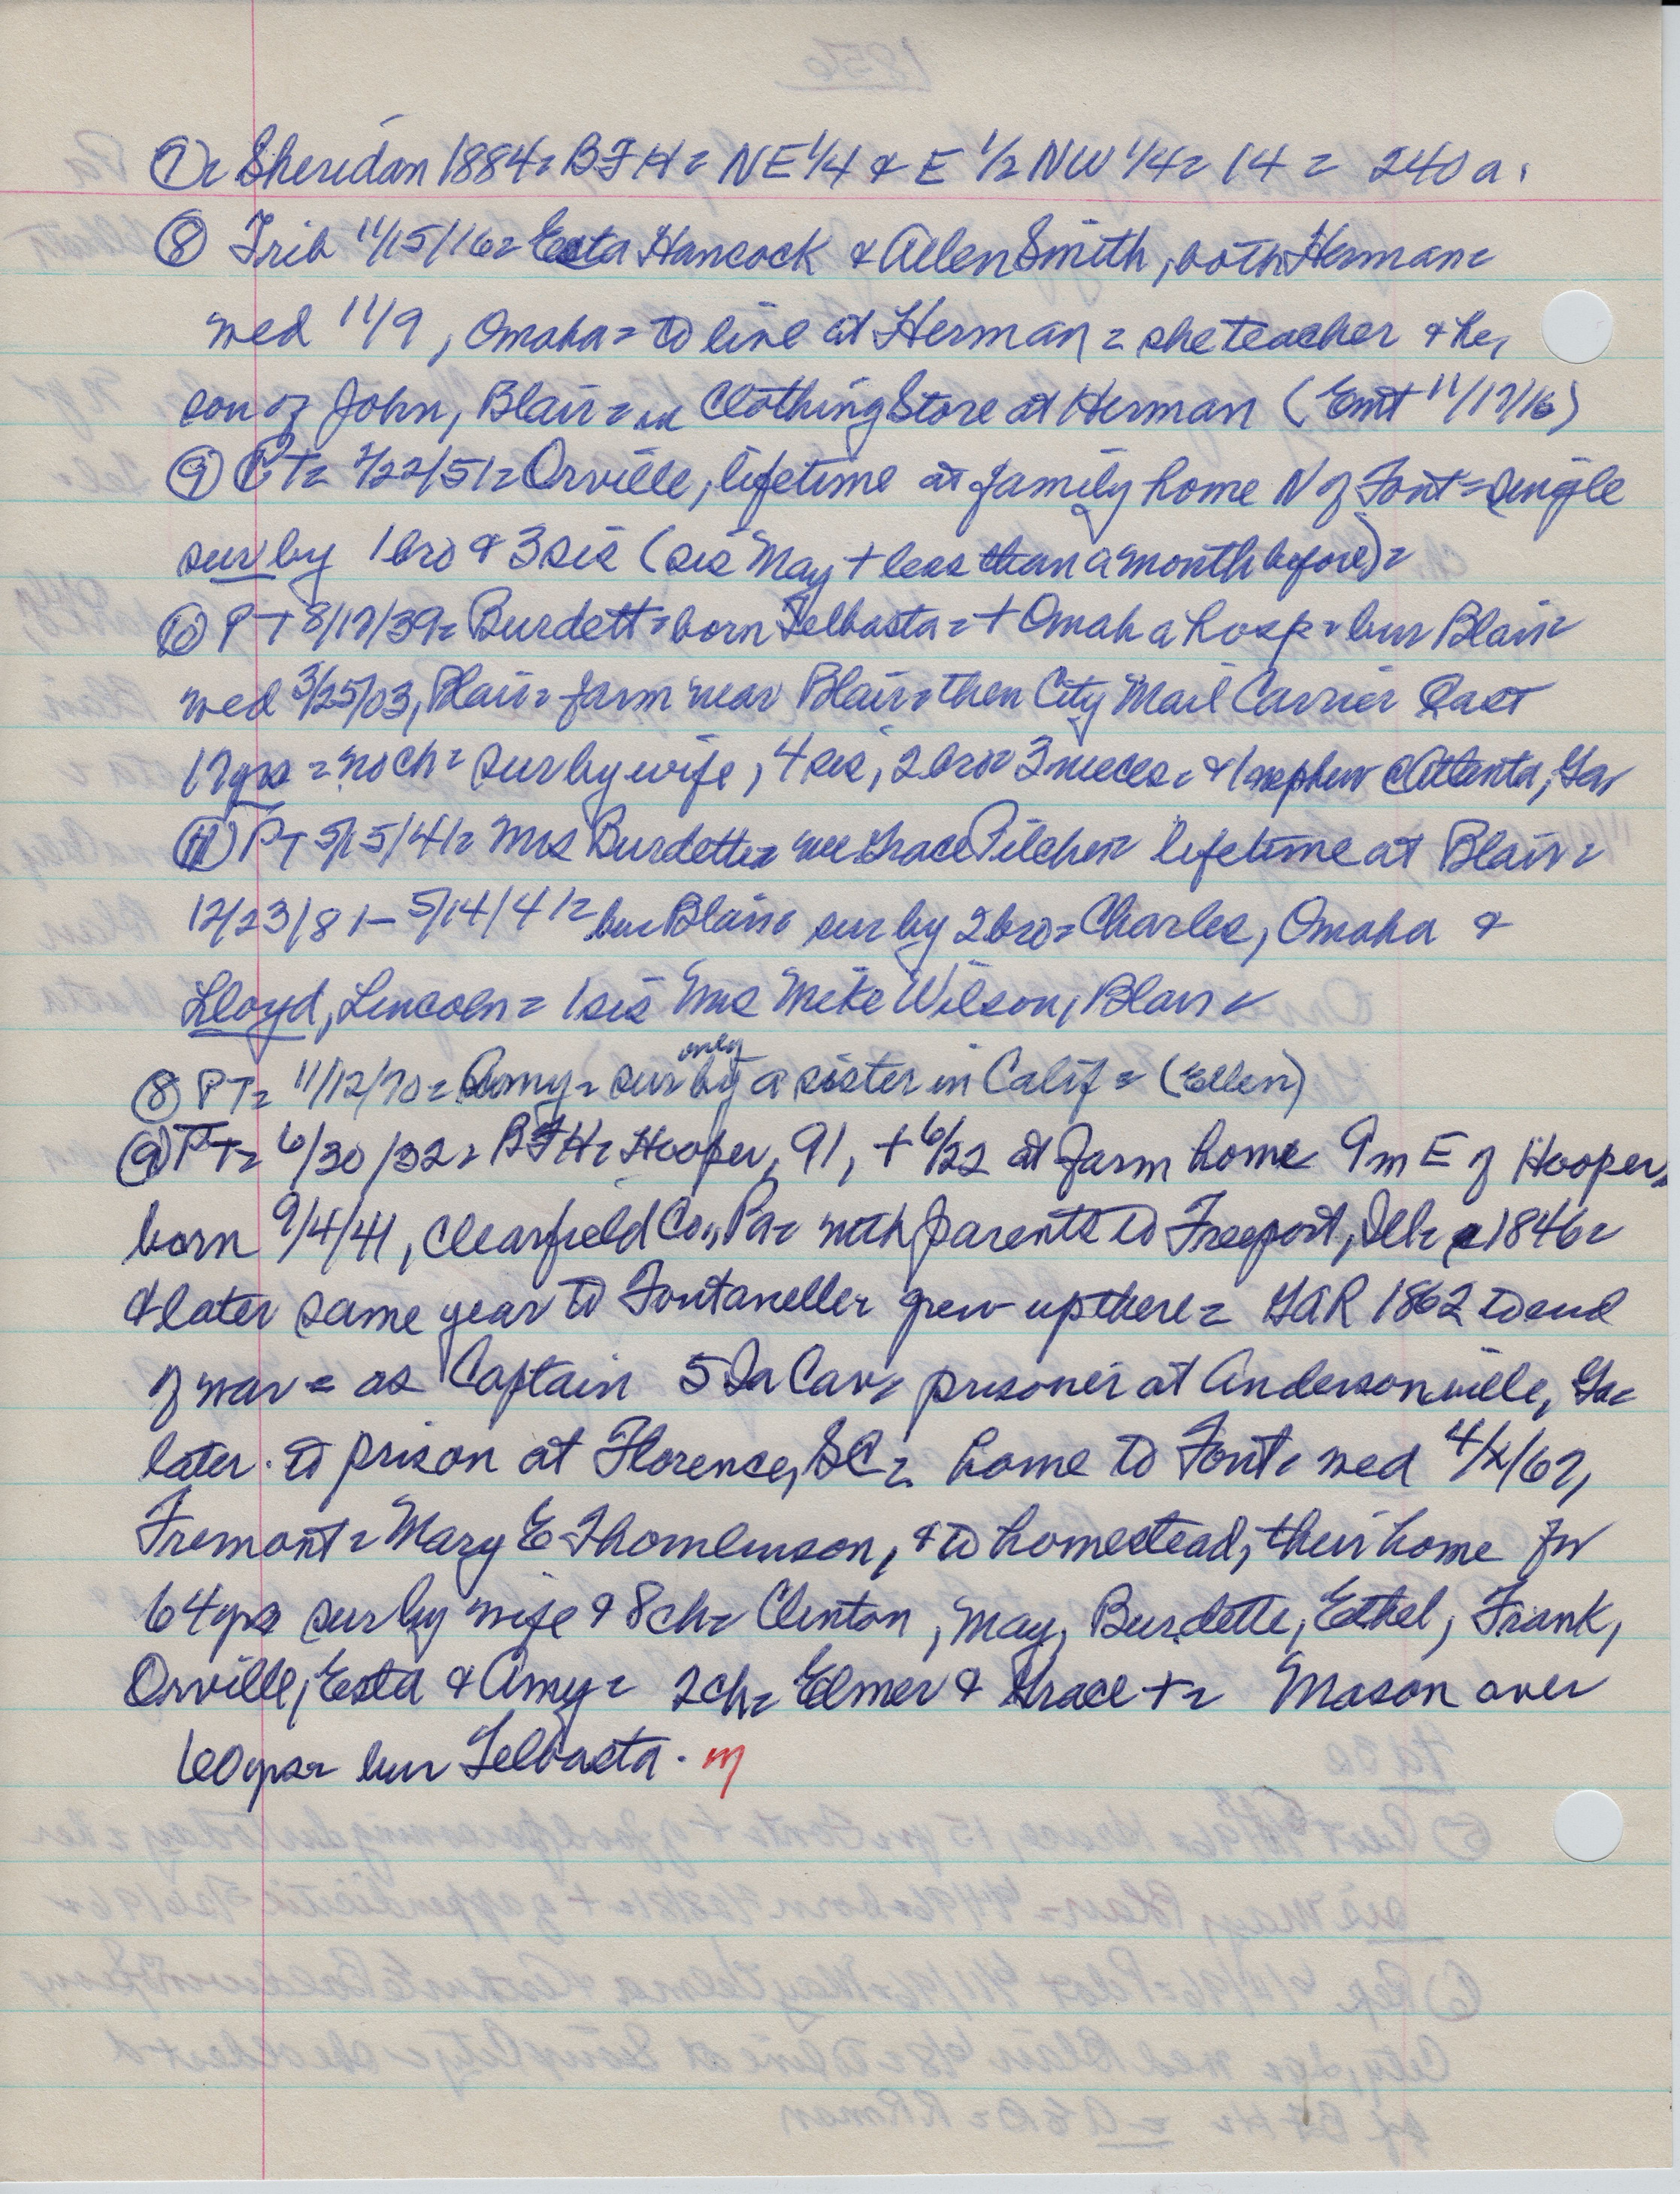 ⑦= Sheridan 1884= BFH= NE 1/4 & E 1/2 NW 1/4= 14 = 240 a.
⑧ Trib 11/15/16= Esta Hancock & Allen Smith, both Herman=
wed 11/9, Omaha= to live at Herman = she teacher & he,
son of John, Blair= in Clothing Store at Herman (Ent 11/17/16)
⑨ PT= 7/22/51= Orville, lifetime at family home N of Font= single
sur by 1 bro & 3 sis (sis May + less than a month before)=
⑩ PT 8/17/39= Burdett= born Telbasta= + Omaha hosp= bur Blair=
wed 3/25/03, Blair= farm near Blair= then City Mail Carrier last
17 yrs = no ch= sur by wife, 4 sis, 2 bro= 3 nieces= & 1 nephew Atlanta, Ga=
⑪ PT 5/15/41= Mrs Burdette= nee Grace Pilcher= lifetime at Blair=
12/23/81 – 5/14/41= bur Blair= sur by 2 bro= Charles, Omaha &
Lloyd, Lincoln= 1 sis Mrs Mike Wilson, Blair=
⑧ PT= 11/12/70= Amy= sur by only a sister in Calif = (Ellen)
⑨ PT= 6/30/32= BFH= Hooper, 91, + 6/22 at farm home 9 m E of Hooper,
born 9/4/41, Clearfield Co., Pa= with parents to Freeport, Ill= 1846=
& later same year to Fontanelle= grew up there= GAR 1862 to end
of war = as Captain 5 Ia Cav= prisoner at Andersonville, Ga=
later to prison at Florence, SC= home to Font= wed 4/x/67,
Fremont= Mary E Thomlinson, & to homestead, their home for
64 yrs sur by wife & 8 ch= Clinton, May, Burdette, Ethel, Frank,
Orville, Esta & Amy= 2 ch= Elmer & Grace += Mason over
60 yrs= bur Telbasta. m